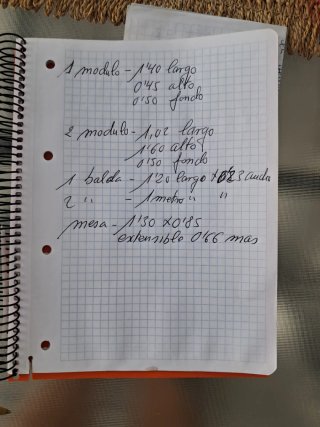 1 modulo - 1'40 largo
0'45 alto
0'50 fondo
2 modulo - 1,02 largo
1'60 alto
0'50 fondo
1 balda - 1'20 largo x 0'23 ancho
2 " - 1 metro " "
mesa - 1'30 x 0'85
extensible 0'66 mas